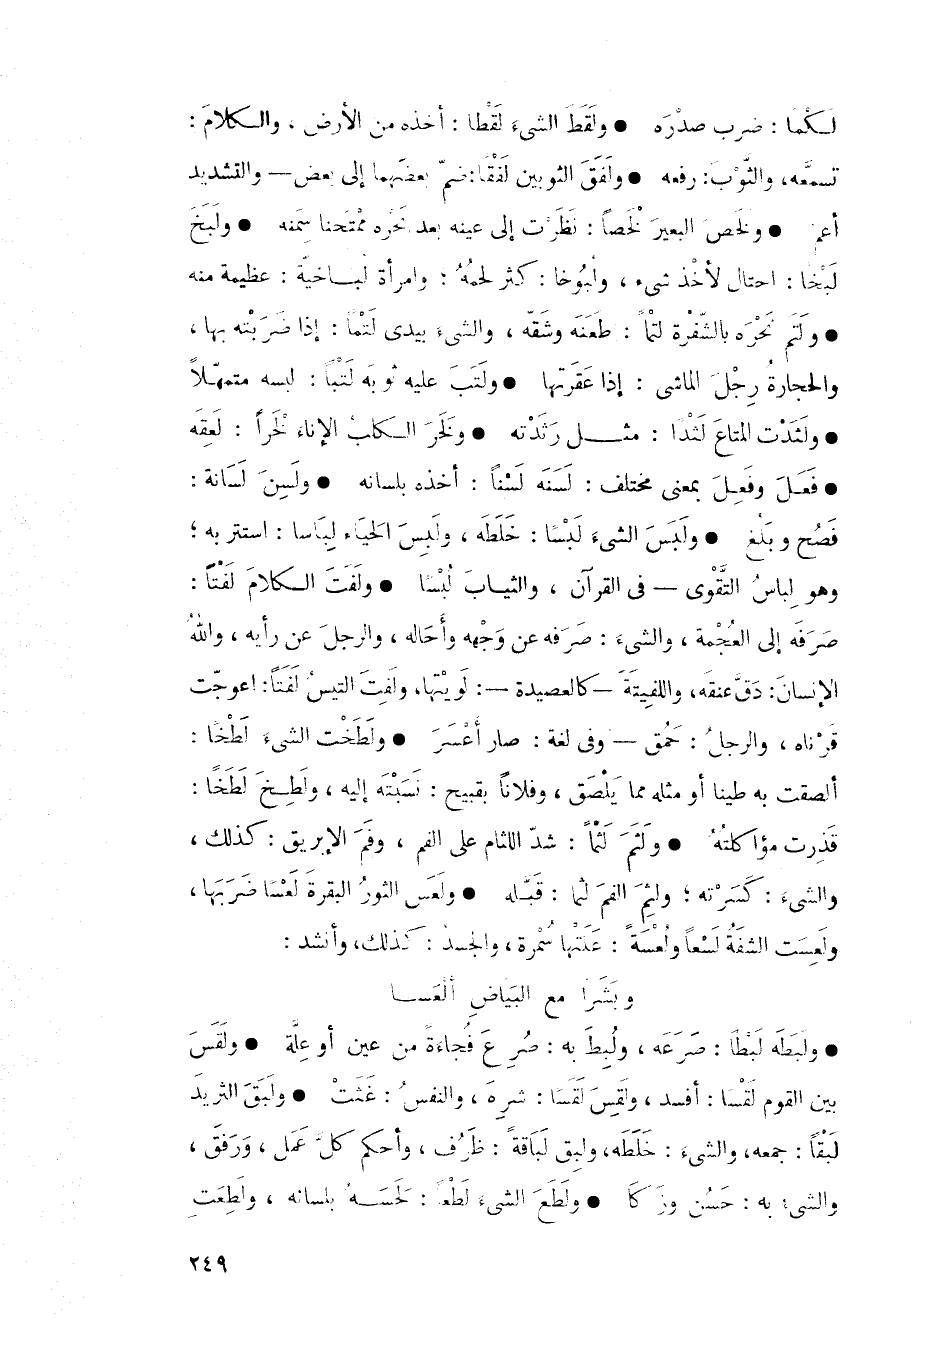 لَكْمًا : ضرب صدْرَه ● ولَقَطَ الشىءَ لَقْطا : أخذه من الأرض ، والكلامَ :
تسمعَّه، والثَّوْبَ : رفعه ● ولَفَقَ الثوبين لَفْقًا : ضمّ بعضَهما إلى بعض — والتشديد
أعم ● ولخَصَ البعيرَ لَخْصاً : نَظَرْت إلى عينه بعد نَحْره مُمْتَحنا سِمَنه ● ولَبَخَ
لَبْخًا : احتال لأخْذ شىء ، ولُبُوخا : كثر لحمُهُ ؛ وامرأة لُبَاخيَّة : عظيمة منه
● ولَتَم نَحْرَه بالشَّفْرة لَتْماً : طعَنَه وشَقّه ، والشىءَ بيدى لَتْمًا : إذا ضَرَبْتَه بها ،
والحجارةُ رِجْلَ الماشى : إذا عَقَرتْها ● ولَتَبَ عليه ثوبَه لَتْبًا : لبسه متمهّلاً
● ولَثَدْت المتاعَ لَثْدًا : مثل رَثَدْته ● ولَخَرَ الكلبُ الإناءَ لَخْراً : لَعِقَه
● فَعَلَ وفَعِلَ بمعنى مختلف : لَسَنَه لَسْناً : أخذه بلسانه ● ولَسِنَ لَسَانة :
فَصُح وبَلُغ ● ولَبَسَ الشىءَ لَبْسًا : خَلَطَه ، ولَبِسَ الحَيَاء لِبَاسا : استتر به ؛
وهو لِباسُ التَّقْوى — فى القرآن ، والثيابَ لُبْسًا ● ولَفَتَ الكلامَ لَفْتاً :
صَرَفَه إلى العُجْمة ، والشىءَ : صَرَفه عن وَجْهه وأَحَاله ، والرجلَ عن رأيه ، واللهُ
الإنسانَ : دَقَّ عنقَه، واللفيتَةَ — كالعصيدة — : لَوَيْتها، ولَفِتَ التيسُ لَفَتاً : اعوجّت
قَرْناه ، والرجلُ : حَمُق — وفى لغة : صار أَعْسَرَ ● ولَطَخْت الشىءَ لَطْخًا :
ألصقت به طينا أو مثله مما يَلْصَق ، وفلاناً بقبيح : نَسَبْتَه إليه ، ولَطِخَ لَطَخًا :
قَذِرت مؤاكلتُهُ ● ولَثَمَ لَثْماً : شدّ اللثام على الفم ، وفَمَ الإبريق : كذلك ،
والشىءَ : كَسَرْته ؛ ولَثِمَ الفمَ لثما : قَبَّله ● ولَعَس الثورُ البقرةَ لَعْسًا ضَرَبَها ،
ولَعِسَت الشفَةُ لَعَساً ولُعْسَةً : عَلَتْها سُمْرة ، والجسدُ : كذلك، وأنشد :
وبَشَراً مع البَيَاضِ ألْعَسا
● ولَبَطَه لَبْطًا : صَرَعَه ، ولُبِطَ به : صُرِعَ فُجاءةً من عين أو عِلَّة ● ولَقَسَ
بين القوم لَقْسًا : أفسد ، ولَقِسَ لَقَسًا : شَرِهَ ، والنفسُ : غَثَتْ ● ولَبَقَ الثريدَ
لَبْقاً : جمعه، والشىءَ : خَلَطَه، ولبِق لَبَاقةً : ظَرُف ، وأحكم كلَّ عَمَل ، وَرَفقَ ،
والشىء به : حَسُن وزَكَا ● ولَطَعَ الشىءَ لَطْعاً : لَحَسَهُ بلسانه ، ولَطِعَت
٢٤٩